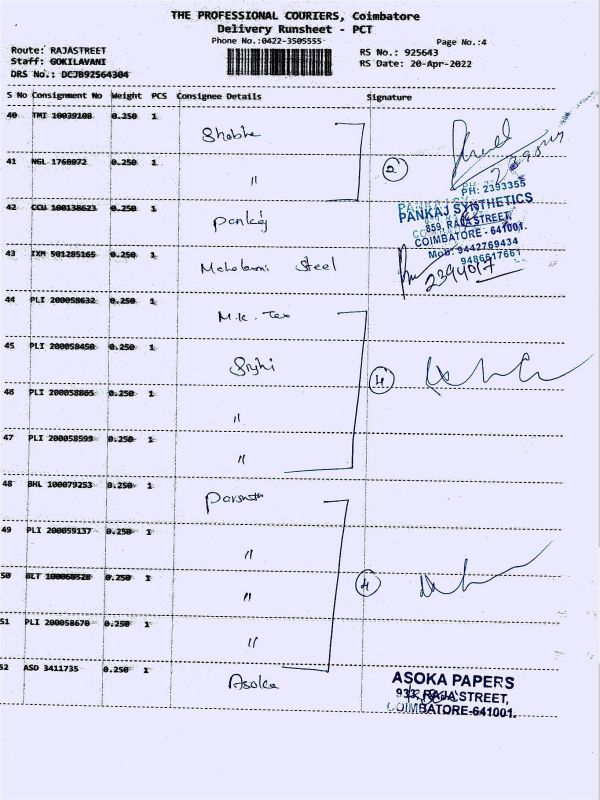 THE PROFESSIONAL COURIERS, Coimbatore
Delivery Runsheet - PCT
Phone No.:0422-3505555
Page No.:4
Route: RAJASTREET
Staff: GOKILAVANI
DRS No.: DCJB92564304
RS No.: 925643
RS Date: 20-Apr-2022
S No Consignment No Weight PCS Consignee Details Signature
40 TMI 10039108 0.250 1
41 NGL 1768072 0.250 1 "
2
42 CCU 100138623 0.250 1 Pankaj
43 IXM 501285165 0.250 1 Steel
PH: 2393355
PANKAJ SYNTHETICS
859, RAJA STREET,
COIMBATORE - 641001.
Mob: 9442769434
9486617661
2394017
44 PLI 200058632 0.250 1 M.K. Tex
45 PLI 200058450 0.250 1
4
46 PLI 200058865 0.250 1 "
47 PLI 200058599 0.250 1 "
48 BHL 100079253 0.250 1
49 PLI 200059137 0.250 1 "
50 BLT 100060528 0.250 1 "
4
51 PLI 200058670 0.250 1 "
52 ASD 3411735 0.250 1 Asoka
ASOKA PAPERS
933, RAJA STREET,
COIMBATORE-641001.